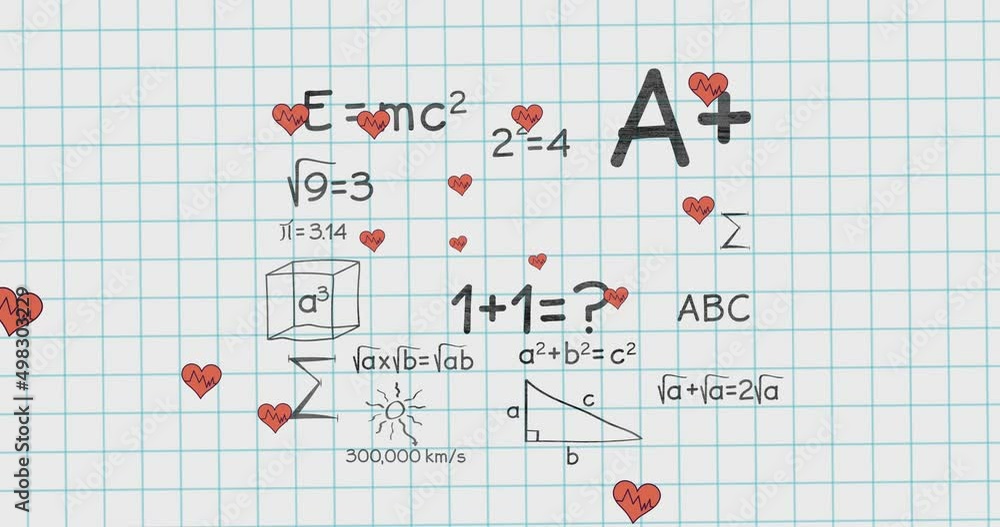 E=mc²
2²=4
A+
√9=3
π=3.14
Σ
a³
1+1=?
ABC
Σ
√a×√b=√ab
a²+b²=c²
√a+√a=2√a
a
c
b
300,000 km/s
Adobe Stock | #498303229